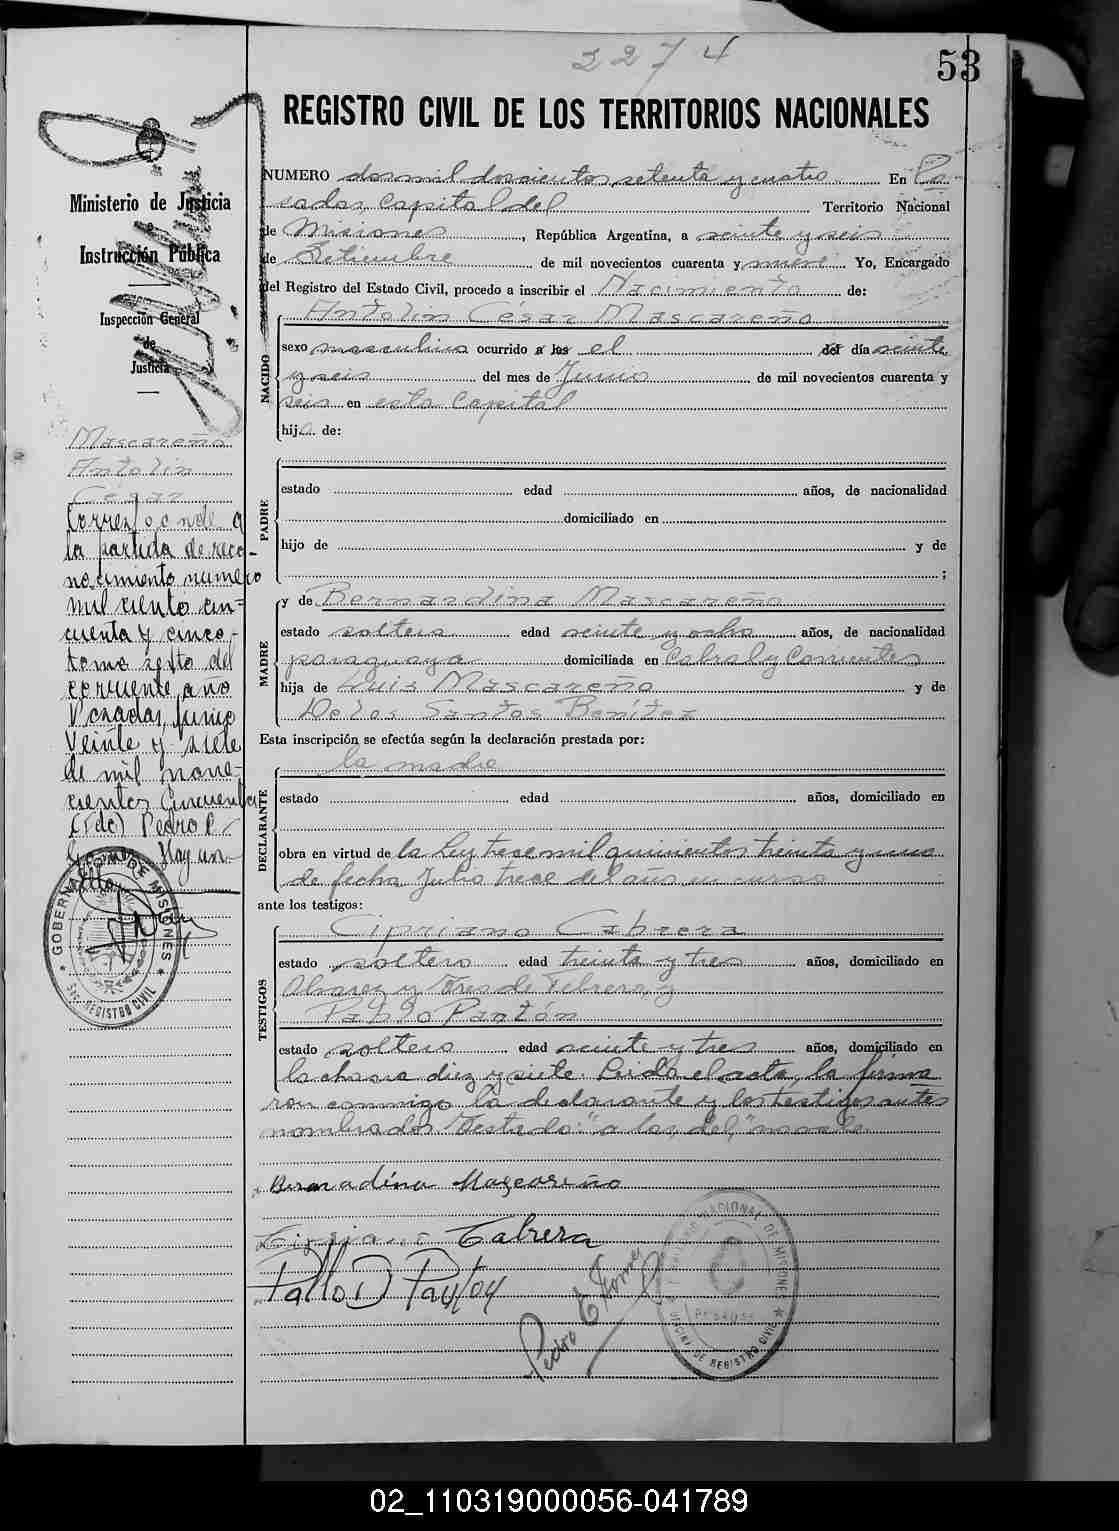 2274
53
REGISTRO CIVIL DE LOS TERRITORIOS NACIONALES
Ministerio de Justicia
e
Instrucción Pública
Inspección General
de
Justicia
Mascareño
Antolin
César
Corresponde a
la partida de reco-
nocimiento numero
mil ciento cin-
cuenta y cinco-
tomo sexto del
corriente año
Posadas, Junio
Veinte y siete
de mil nove-
cientos Cincuenta
(Fdo) Pedro E.
Hay un
sello
GOBERNACION DE MISIONES
Sec. REGISTRO CIVIL
NUMERO dos mil doscientos setenta y cuatro En Po-
sadas, Capital del Territorio Nacional
de Misiones, República Argentina, a veinte y seis
de Setiembre de mil novecientos cuarenta y nueve Yo, Encargado
del Registro del Estado Civil, procedo a inscribir el Nacimiento de:
NACIDO
Antolin César Mascareño
sexo masculino ocurrido a los el del día veinte
y seis del mes de Junio de mil novecientos cuarenta y
seis en esta Capital
hijo de:
PADRE
estado edad años, de nacionalidad
domiciliado en
hijo de y de
;
MADRE
y de Bernardina Mascareño
estado soltera edad veinte y ocho años, de nacionalidad
paraguaya domiciliada en Cabral y Corrientes
hija de Luis Mascareño y de
De los Santos Benítez
Esta inscripción se efectúa según la declaración prestada por:
DECLARANTE
la madre
estado edad años, domiciliado en
obra en virtud de la Ley trece mil quinientos treinta y uno
de fecha Julio trece del año en curso
ante los testigos:
TESTIGOS
Cipriano Cabrera
estado soltero edad treinta y tres años, domiciliado en
Alvarez y Tres de Febrero, y
Pablo Pantón
estado soltero edad veinte y tres años, domiciliado en
la chacra diez y siete. Leida el acta, la firma
ron conmigo la declarante y los testigos antes
nombrados. Testado: "a los, del," no vale.
Bernadina Mascareño
Cipriano Cabrera
Pedro E
REGISTRO CIVIL
02_110319000056-041789